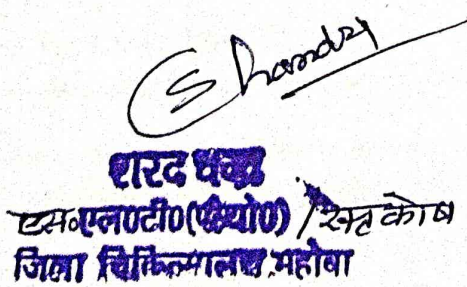 S Chandra
शरद चन्द्र
एस०एल०टी०(पैथो०) / रक्त कोष
जिला चिकित्सालय, महोबा